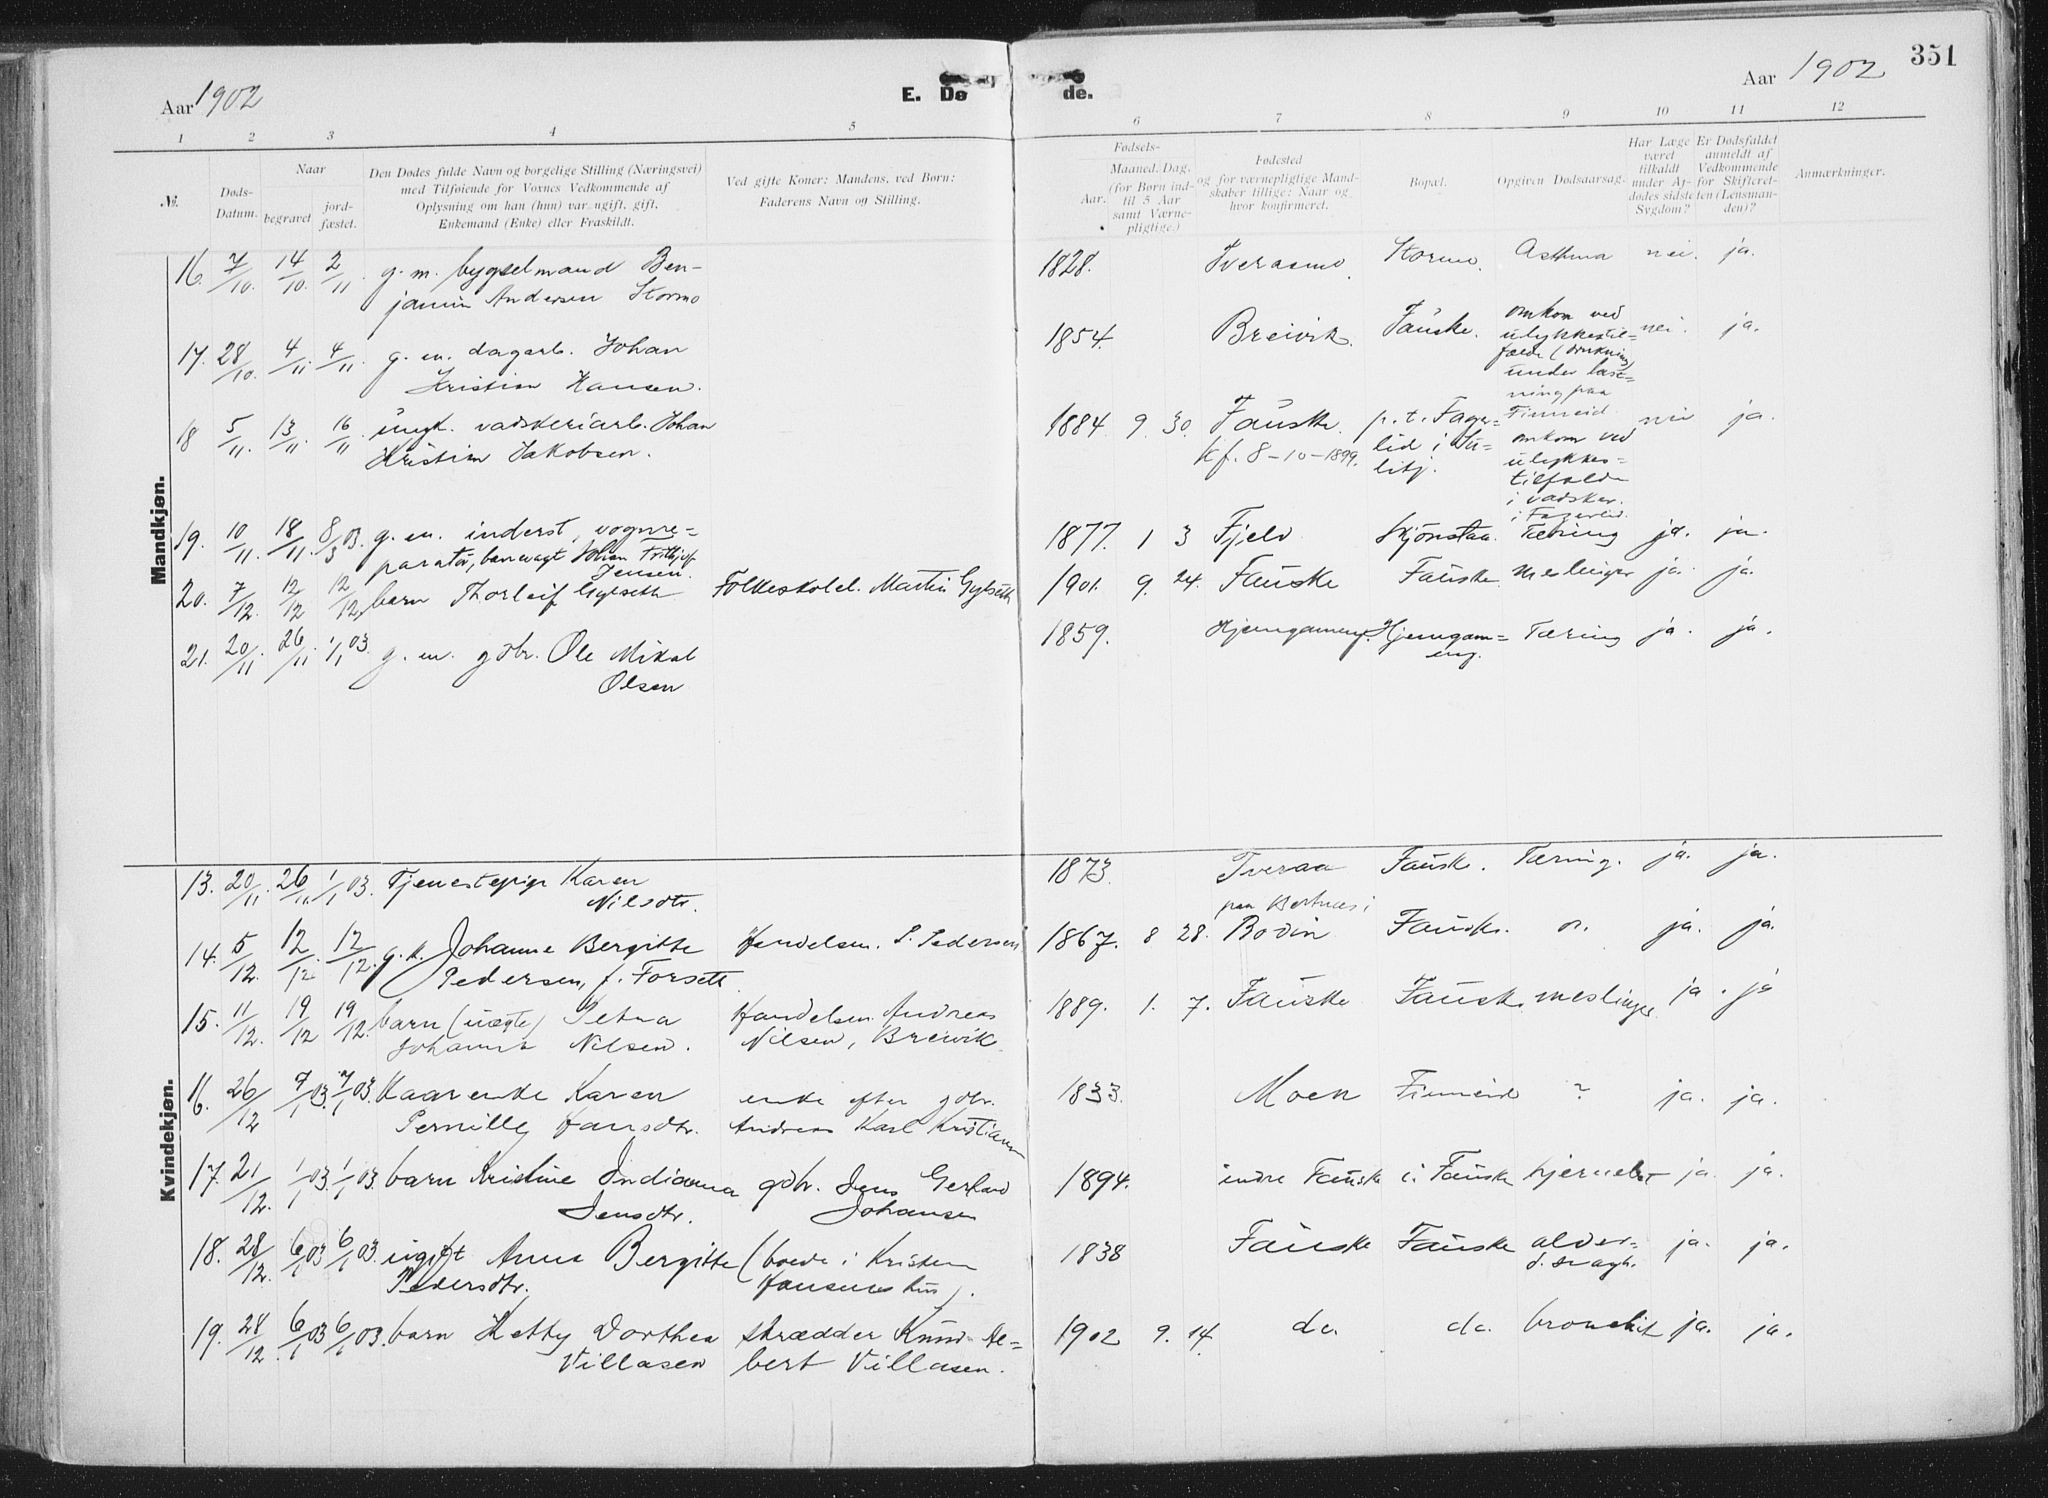 Aar 1902
E. Dø de.
Aar 1902 351
1 2 3 4 5 6 7 8 9 10 11 12
№.
Døds-Datum.
Naar
begravet
jord-fæstet.
Den Dødes fulde Navn og borgelige Stilling (Næringsvei)
med Tilføiende for Voxnes Vedkommende af
Oplysning om han (hun) var ugift, gift,
Enkemand (Enke) eller Fraskildt.
Ved gifte Koner: Mandens, ved Børn:
Faderens Navn og Stilling.
Fødsels-
Aar.
Maaned. Dag.
(for Børn ind-
til 5 Aar
samt Værne-
pligtige.)
Fødested
og for værnepligtige Mand-
skaber tillige: Naar og
hvor konfirmeret.
Bopæl.
Opgiven Dødsaarsag.
Har Læge
været
tilkaldt
under Af-
dødes sidste
Sygdom?
Er Dødsfaldet
anmeldt af
Vedkommende
for Skifteret-
ten (Lensman-
den)?
Anmærkninger.
Mandkjøn.
16. 7/10. 14/10. 2/11. g. m. bygselmand Ben- 1828. Tveraamo Stormo. Asthma nei. ja.
jamin Andersen Stormo
17. 28/10. 4/11. 4/11. g. m. dagarb. Johan 1854. Breivik. Fauske. omkom ved nei. ja.
Kristian Hansen.
ulykkestil-
fælde (drukning)
under laste-
ning paa
Finneid.
18 5/11. 13/11. 16/11. ungk. vadskeriarb. Johan 1884 9. 30. Fauske. p. t. Fager- nei ja.
Kristian Jakobsen. kf. 8-10-1899. lid i Su-
litj.
omkom ved
ulykkes-
tilfælde
i vadsker.
i Fagerlid.
19. 10/11. 18/11. 8/3 03. g. m. inderst, vognre- 1877. 1 3 Fjeld Skjönstaa. Tæring ja. ja.
paratör, banevagt Johan Fridtjof
Jensen.
20. 7/12. 12/12 12/12, barn Thorleif Gylseth Folkeskolel. Martin Gylseth 1901. 9. 24. Fauske Fauske meslinger ja. ja.
21. 20/11. 26/11. 1/1 03. g. m. gdbr. Ole Mikal 1859. Hjemgameng. Hjemgam- Tæring ja. ja.
Olsen eng.
Kvindekjøn.
13. 20/11. 26/11 1/1 03. Tjenestepige Karen 1873. Tveraa Fausk. Tæring. ja. ja.
Nilsdtr.
paa i
14. 5/12. 12/12. 12/12. g. k. Johanne Bergitte Handelsm. P. Pedersen 1867. 8 28. Bodin Fauske. ja. ja.
Pedersen, f. Forseth
15. 11/12. 19/12 19/12. barn (uægte) Petra Handelsm. Andreas 1889. 1. 7. Fauske Fausk. meslinger ja. ja
Johanna Nilsen. Nilsen, Breivik.
16. 26/12 7/1 03. 7/1 03. Kaarenke Karen enke efter gdbr. 1833. Moen Finneid ? ja. ja.
Pernille Hansdtr. Andreas Karl Kristiansen
17. 21/12. 1/1 03. 1/1 03. barn Kristine Indianna gdbr. Jens Gerhard 1894. indre Fauske i. Fauske hjernebet ja. ja.
Jensdtr. Johansen
18. 28/12. 6/1 03 6/1 03. ugift Anne Bergitte (boede i Kristen 1838 Fauske Fauske alder- ja. ja.
Pedersdtr. Hansens hus). d. svagh.
19. 28/12. 6/1 03 6/1 03. barn Hetty Dorthea skrædder Knud Al- 1902 9. 14. do. do. bronchit ja. ja.
Villasen bert Villasen.